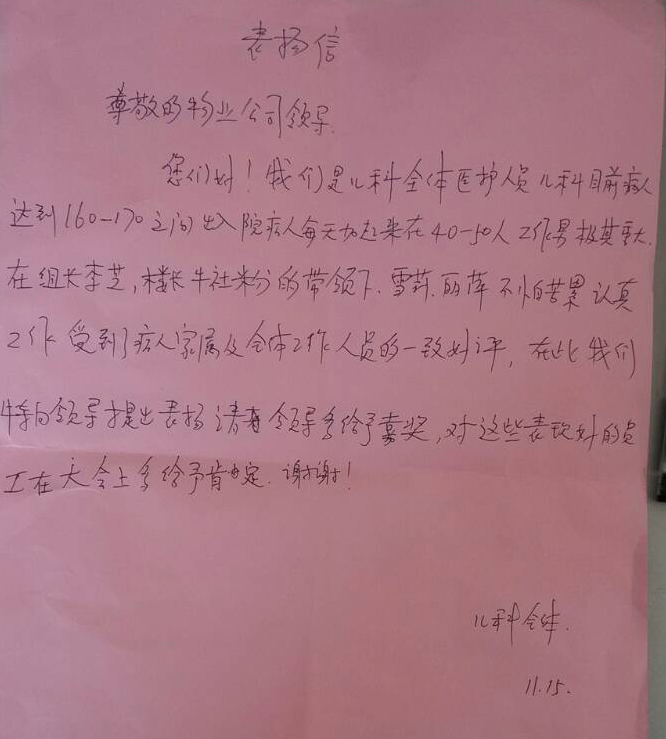 表扬信
尊敬的物业公司领导.
您们好！我们是儿科全体医护人员儿科目前病人
达到160-170之间出入院病人每天加起来在40-50人工作量极其重大.
在组长李芝,楼长牛社粉的带领下.雪莉.丽萍不怕苦累认真
工作受到了病人家属及全体工作人员的一致好评,在此我们
特向领导提出表扬请领导多给予嘉奖,对这些表现好的员
工在大会上多给予肯定.谢谢!
儿科全体.
11.15.